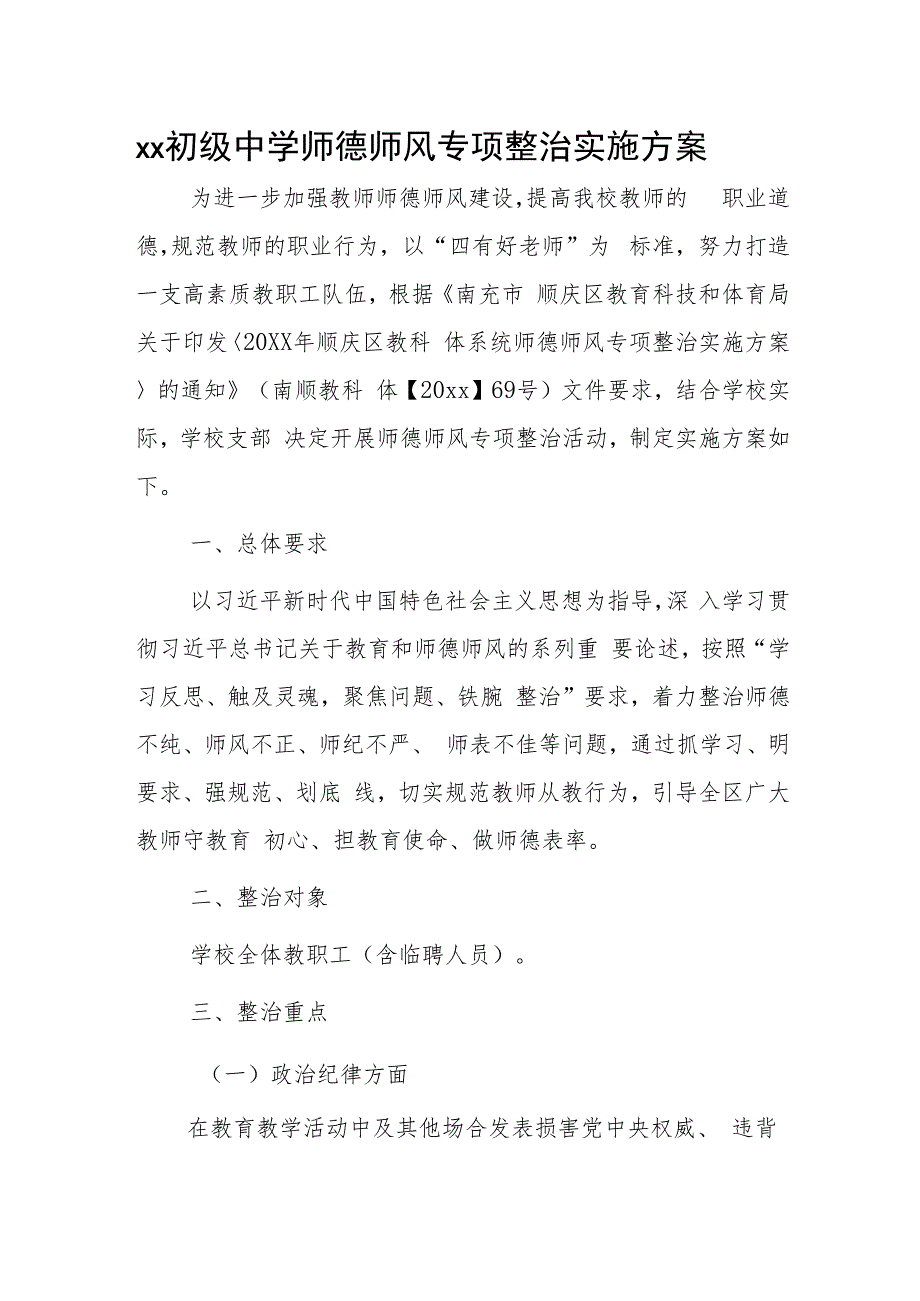 xx初级中学师德师风专项整治实施方案
为进一步加强教师师德师风建设,提高我校教师的 职业道
德,规范教师的职业行为，以“四有好老师”为 标准，努力打造
一支高素质教职工队伍，根据《南充市 顺庆区教育科技和体育局
关于印发〈20XX年顺庆区教科 体系统师德师风专项整治实施方案
〉的通知》（南顺教科 体【20xx】69号）文件要求，结合学校实
际，学校支部 决定开展师德师风专项整治活动，制定实施方案如
下。
一、总体要求
以习近平新时代中国特色社会主义思想为指导,深 入学习贯
彻习近平总书记关于教育和师德师风的系列重 要论述，按照“学
习反思、触及灵魂，聚焦问题、铁腕 整治”要求，着力整治师德
不纯、师风不正、师纪不严、 师表不佳等问题，通过抓学习、明
要求、强规范、划底 线，切实规范教师从教行为，引导全区广大
教师守教育 初心、担教育使命、做师德表率。
二、整治对象
学校全体教职工（含临聘人员）。
三、整治重点
（一）政治纪律方面
在教育教学活动中及其他场合发表损害党中央权威、 违背